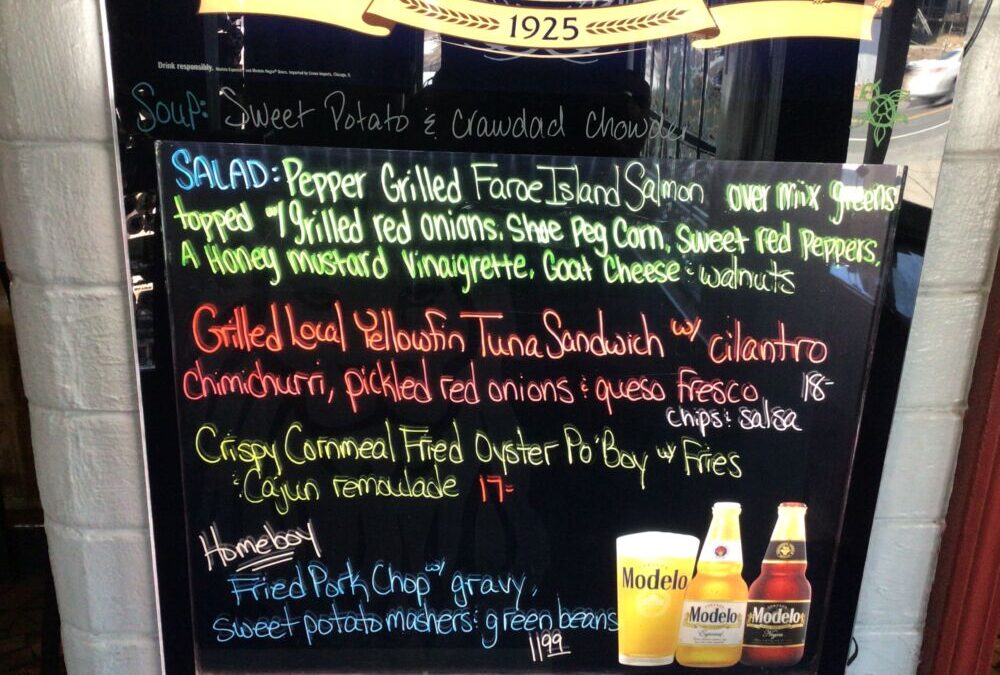 1925
Drink responsibly.
Soup: Sweet Potato & Crawdad Chowder
SALAD: Pepper Grilled Faroe Island Salmon over mix greens
topped w/ grilled red onions. Shoe Peg Corn, Sweet red Peppers,
A Honey mustard Vinaigrette, Goat Cheese & walnuts
Grilled Local Yellowfin Tuna Sandwich w/ cilantro
chimichurri, pickled red onions & queso fresco 18-
chips & salsa
Crispy Cornmeal Fried Oyster Po'Boy w/ Fries
& Cajun remoulade 17-
Homeboy
Fried Pork Chop w/ gravy,
sweet potato mashers & green beans
11.99
Modelo
Modelo
Especial
Modelo
Negra